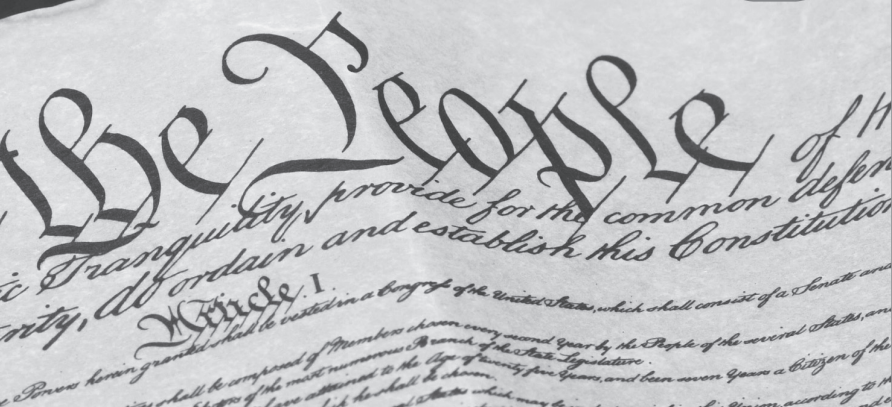 the People of
ic Tranquility, provide for the common defen
rity, do ordain and establish this Constitution
Article. I.
Powers herein granted shall be vested in a Congress of the United States, which shall consist of a Senate and
shall be composed of Members chosen every second Year by the People of the several States, an
of the most numerous Branch of the State Legislature.
have attained to the Age of twenty five Years, and been seven Years a Citizen of the
he shall be chosen.
States which may be
according to